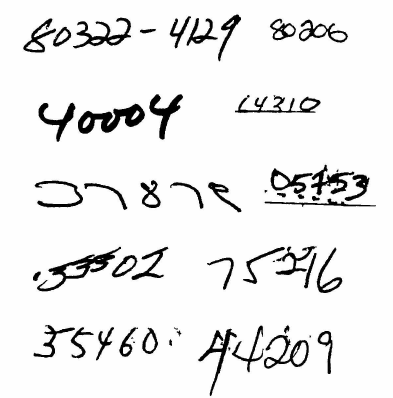 80322-4129 80206
40004 14310
37878 05753
33502 75216
35460 44209